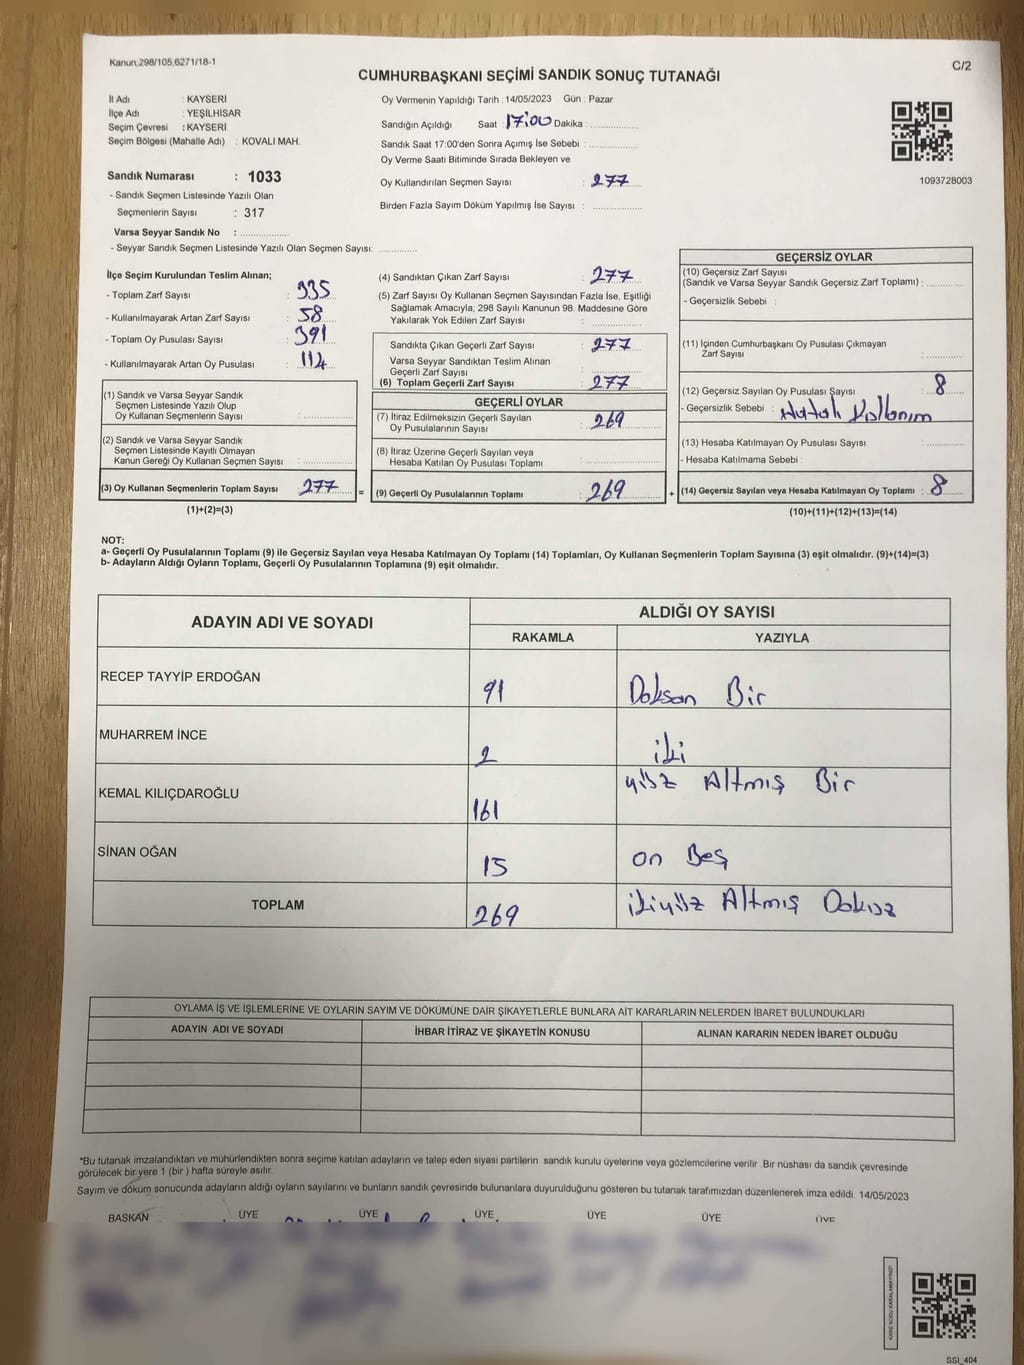 Kanun,298/105,6271/18-1
C/2
CUMHURBAŞKANI SEÇİMİ SANDIK SONUÇ TUTANAĞI
İl Adı : KAYSERİ
İlçe Adı : YEŞİLHİSAR
Seçim Çevresi : KAYSERİ
Seçim Bölgesi (Mahalle Adı) : KOVALI MAH.
Sandık Numarası : 1033
- Sandık Seçmen Listesinde Yazılı Olan
Seçmenlerin Sayısı : 317
Varsa Seyyar Sandık No : ................
- Seyyar Sandık Seçmen Listesinde Yazılı Olan Seçmen Sayısı: ............
Oy Vermenin Yapıldığı Tarih : 14/05/2023 Gün : Pazar
Sandığın Açıldığı Saat : 17:00 Dakika : ................
Sandık Saat 17:00'den Sonra Açımış İse Sebebi : ................
Oy Verme Saati Bitiminde Sırada Bekleyen ve
Oy Kullandırılan Seçmen Sayısı : 277
Birden Fazla Sayım Döküm Yapılmış İse Sayısı : ................
1093728003
İlçe Seçim Kurulundan Teslim Alınan;
- Toplam Zarf Sayısı : 335
- Kullanılmayarak Artan Zarf Sayısı : 58
- Toplam Oy Pusulası Sayısı : 391
- Kullanılmayarak Artan Oy Pusulası : 114
(1) Sandık ve Varsa Seyyar Sandık
Seçmen Listesinde Yazılı Olup
Oy Kullanan Seçmenlerin Sayısı : ................
(2) Sandık ve Varsa Seyyar Sandık
Seçmen Listesinde Kayıtlı Olmayan
Kanun Gereği Oy Kullanan Seçmen Sayısı : ................
(3) Oy Kullanan Seçmenlerin Toplam Sayısı : 277
(1)+(2)=(3)
(4) Sandıktan Çıkan Zarf Sayısı : 277
(5) Zarf Sayısı Oy Kullanan Seçmen Sayısından Fazla İse, Eşitliği
Sağlamak Amacıyla, 298 Sayılı Kanunun 98. Maddesine Göre
Yakılarak Yok Edilen Zarf Sayısı : ................
Sandıkta Çıkan Geçerli Zarf Sayısı : 277
Varsa Seyyar Sandıktan Teslim Alınan
Geçerli Zarf Sayısı : ................
(6) Toplam Geçerli Zarf Sayısı : 277
GEÇERLİ OYLAR
(7) İtiraz Edilmeksizin Geçerli Sayılan
Oy Pusulalarının Sayısı : 269
(8) İtiraz Üzerine Geçerli Sayılan veya
Hesaba Katılan Oy Pusulası Toplamı : ................
= (9) Geçerli Oy Pusulalarının Toplamı : 269
GEÇERSİZ OYLAR
(10) Geçersiz Zarf Sayısı
(Sandık ve Varsa Seyyar Sandık Geçersiz Zarf Toplamı) : ............
- Geçersizlik Sebebi :
(11) İçinden Cumhurbaşkanı Oy Pusulası Çıkmayan
Zarf Sayısı : ............
(12) Geçersiz Sayılan Oy Pusulası Sayısı : 8
- Geçersizlik Sebebi : Hatalı Kullanım
(13) Hesaba Katılmayan Oy Pusulası Sayısı : ............
- Hesaba Katılmama Sebebi :
+ (14) Geçersiz Sayılan veya Hesaba Katılmayan Oy Toplamı : 8
(10)+(11)+(12)+(13)=(14)
NOT:
a- Geçerli Oy Pusulalarının Toplamı (9) ile Geçersiz Sayılan veya Hesaba Katılmayan Oy Toplamı (14) Toplamları, Oy Kullanan Seçmenlerin Toplam Sayısına (3) eşit olmalıdır. (9)+(14)=(3)
b- Adayların Aldığı Oyların Toplamı, Geçerli Oy Pusulalarının Toplamına (9) eşit olmalıdır.
ADAYIN ADI VE SOYADI ALDIĞI OY SAYISI
RAKAMLA YAZIYLA
RECEP TAYYİP ERDOĞAN 91 Doksan Bir
MUHARREM İNCE 2 iki
KEMAL KILIÇDAROĞLU 161 yüz Altmış Bir
SİNAN OĞAN 15 on Beş
TOPLAM 269 ikiyüz Altmış Dokuz
OYLAMA İŞ VE İŞLEMLERİNE VE OYLARIN SAYIM VE DÖKÜMÜNE DAİR ŞİKAYETLERLE BUNLARA AİT KARARLARIN NELERDEN İBARET BULUNDUKLARI
ADAYIN ADI VE SOYADI İHBAR İTİRAZ VE ŞİKAYETİN KONUSU ALINAN KARARIN NEDEN İBARET OLDUĞU
*Bu tutanak imzalandıktan ve mühürlendikten sonra seçime katılan adayların ve talep eden siyasi partilerin sandık kurulu üyelerine veya gözlemcilerine verilir .Bir nüshası da sandık çevresinde
görülecek bir yere 1 (bir ) hafta süreyle asılır.
Sayım ve döküm sonucunda adayların aldığı oyların sayılarını ve bunların sandık çevresinde bulunanlara duyurulduğunu gösteren bu tutanak tarafımızdan düzenlenerek imza edildi. 14/05/2023
BAŞKAN ÜYE ÜYE ÜYE ÜYE ÜYE ÜYE
SSI_404